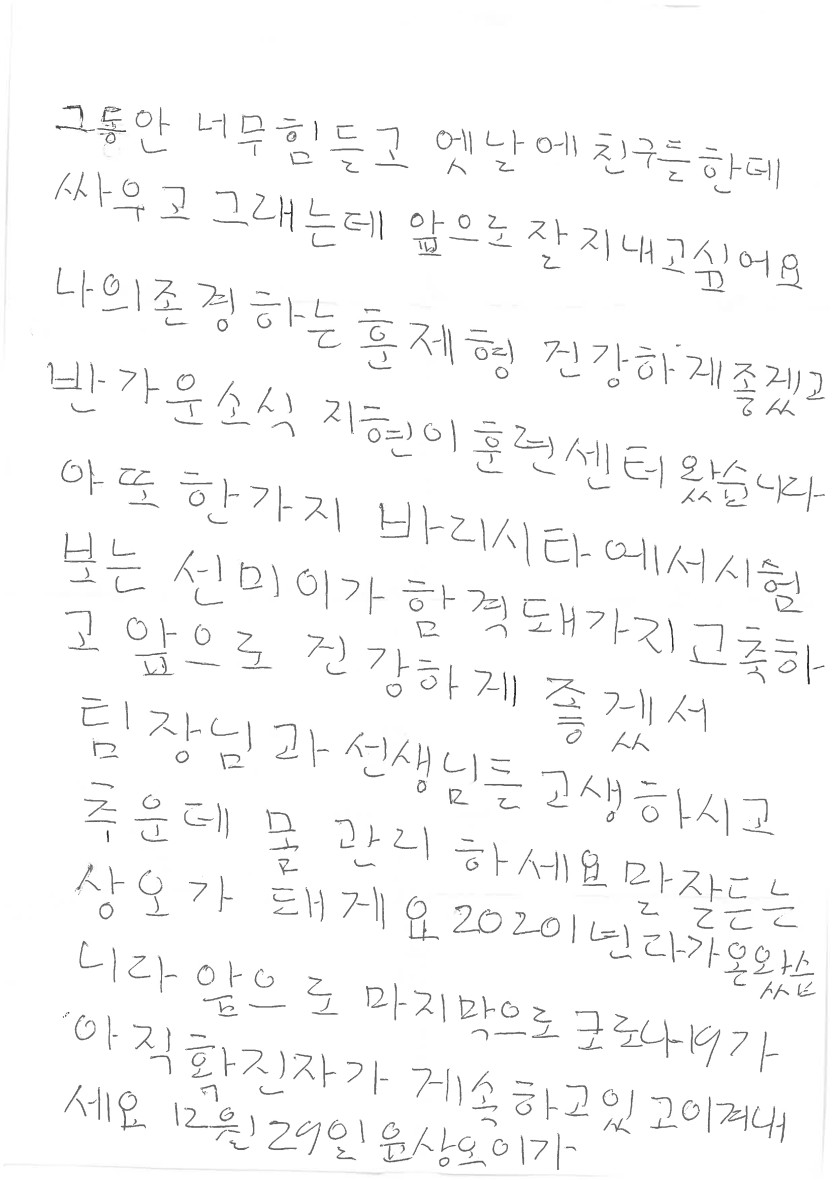 그동안 너무힘들고 엣날에친구들한데
싸우고 그래는데 앞으로잘지내고싶어요
나의존경하는훈제형 건강하게좋겠고
반가운소식 지현이훈련센터왔습니다
아또한가지 바리시타에서시험
보는 선미이가 합격돼가지고축하
고 앞으로 건강하게 좋겠서
팀장님과선생님들고생하시고
추운데 몸 관리하세요 말잘듣는
상오가 돼게요 20201년다가온왔습
니다 앞으로 마지막으로코로나19가
아직확진자가 게속하고있고이겨내
세요 12월29일윤상오이가